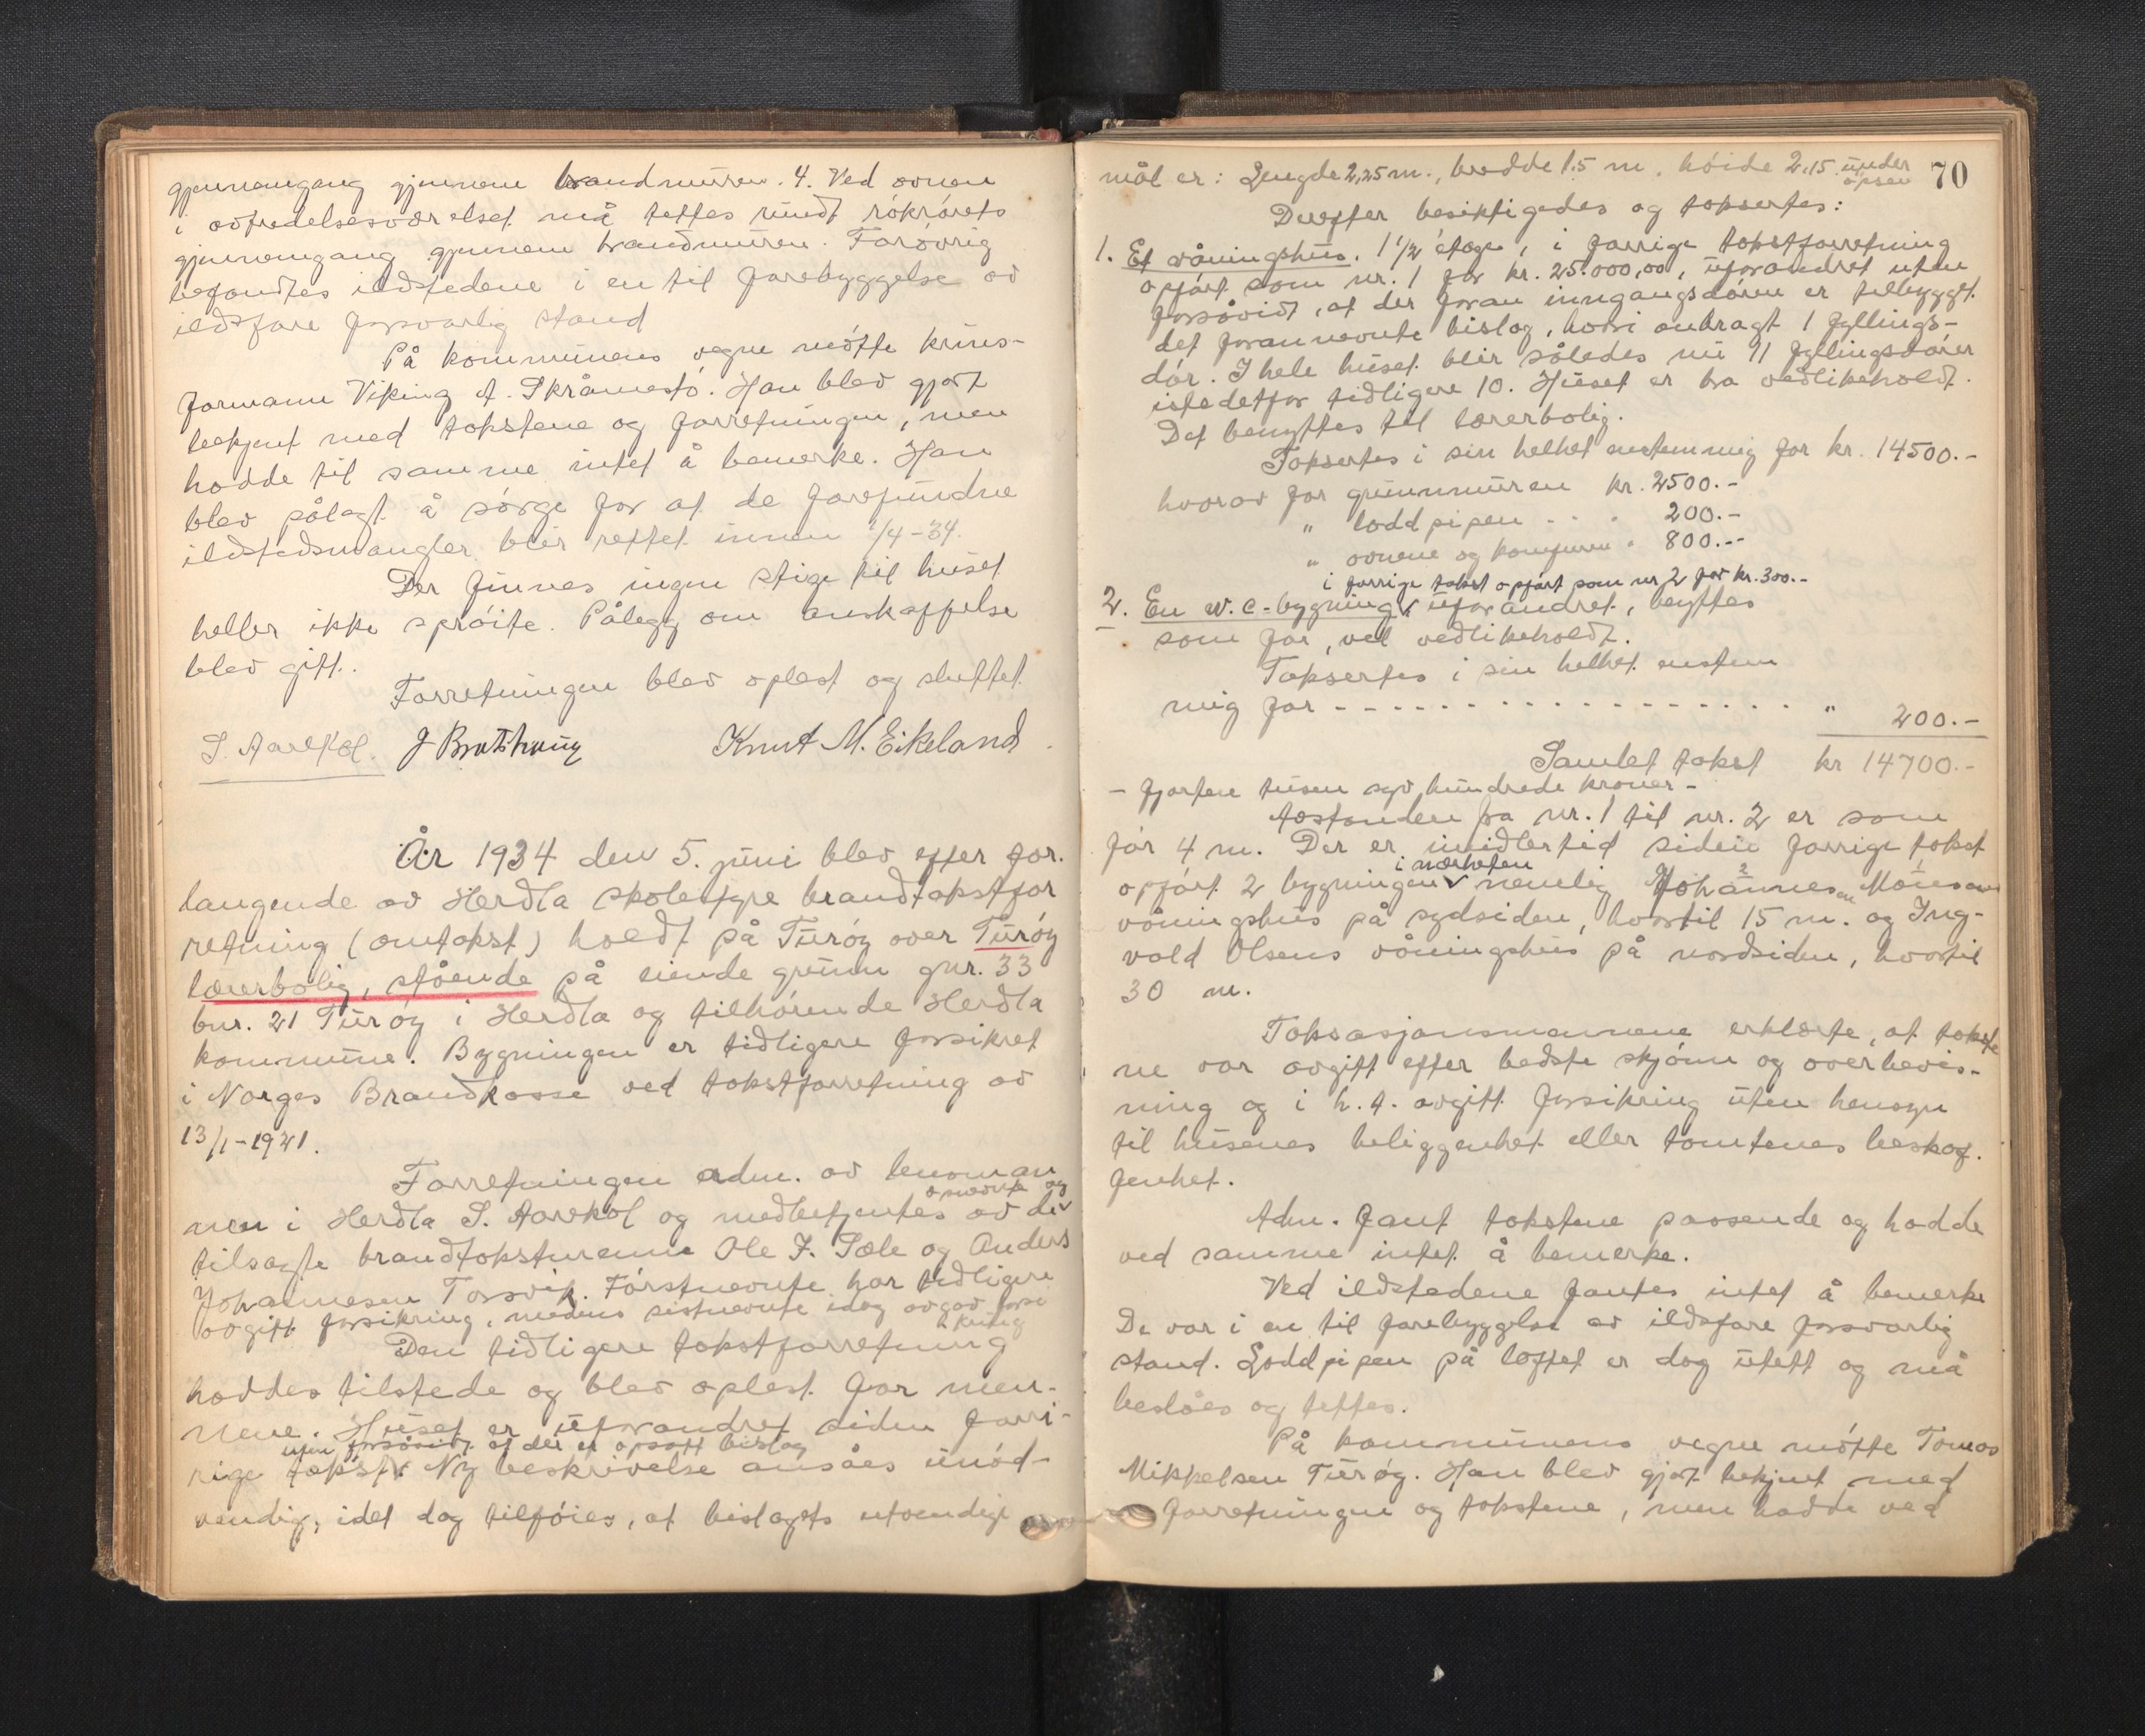 gjennemgang gjennem brandmuren. 4. Ved ovnen
i avfredelsesværelset må tettes rundt rökrörets
gjennemgang gjennem brandmuren. Forøvrig
befandtes ildstedene i en til forebyggelse av
ildsfare forsvarlig stand
På kommunens vegne møtte krins-
formann Viking A. Skråmestø. Han blev gjort
bekjent med takstene og forretningen, men
hadde til samme intet å bemerke. Han
blev pålagt å sörge for at de forefundne
ildstedsmangler blir rettet innen 1/4-34.
Der finnes ingen stige til huset
heller ikke spröite. Pålegg om anskaffelse
blev gitt.
Forretningen blev oplest og sluttet
S. Aarekol. J Bratthaug Knut M. Eikeland.
År 1934 den 5. juni blev efter for-
langende av Herdla skolestyre brandtakstfor
retning (omtakst) holdt på Turöy over Turöy
lærerbolig, stående på eiende grunn gnr. 33
bnr. 21 Turöy i Herdla og tilhörende Herdla
kommune. Bygningen er tidligere forsikret
i Norges Brandkasse ved takstforretning av
13/1-1921.
Forretningen adm. av lensman
nen i Herdla S. Aarekol og medbetjentes av de opnevnte og
tilsagte brandtakstmenn Ole J. Sæle og Anders
Johannesen Torsvik. Förstnevnte har tidligere
avgitt forsikring, medens sistnevnte idag avgav forsi
kring
Den tidligere takstforretning
haddes tilstede og blev oplest for men-
nene. Huset er uforandret siden forri-
uten forsåvidt at der er opsatt bislag
rige takst. Ny beskrivelse ansåes unöd-
vendig, idet dog tilföies, at bislagets utvendige
mål er: Lengde 2,25 m., bredde 1.5 m, höide 2.15 under opsen 70
Derefter besiktigedes og taksertes:
1. Et våningshus. 1 1/2 étage, i forrige takstforretning
opfört som nr. 1 for kr. 25.000,00, uforandret uten
forsåvidt, at der foran inngangsdören er tilbygget
det forannevnte bislag, hvori anbragt 1 fyllings-
dör. I hele huset blir således nu 11 fyllingsdörer
istedetfor tidligere 10. Huset er bra vedlikeholdt.
Det benyttes til lærerbolig.
Taksertes i sin helhet enstemmig for kr. 14500.-
hvorav for grunnmuren kr. 2500.-
" loddpipen - - - 200.-
" ovnene og komfuren " 800.--
i forrige takst opfört som nr 2 for kr. 300.-
2. En w.c-bygning, uforandret, benyttes
som för, vel vedlikeholdt.
Taksertes i sin helhet enstem
mig for - - - - - - - - - - - - - - - - - " 200.-
Samlet takst kr 14700.-
- fjorten tusen syv hundrede kroner -
Avstanden fra nr. 1 til nr. 2 er som
för 4 m. Der er imidlertid siden forrige takst
opfört 2 bygninger i nærheten nemlig Johannes Monsens
våningshus på sydsiden, hvortil 15 m. og Ing-
vald Olsens våningshus på nordsiden, hvortil
30 m.
Taksasjonsmennene erklærte, at takste
ne var avgitt efter bedste skjönn og overbevis-
ning og i h. t. avgitt forsikring uten hensyn
til husenes beliggenhet eller tomtenes beskaf-
fenhet.
Adm. fant takstene passende og hadde
ved samme intet å bemerke.
Ved ildstedene fantes intet å bemerke
De var i en til forebyggelse av ildsfare forsvarlig
stand. Loddpipen på loftet er dog utett og må
beslåes og tettes.
På kommunens vegne møtte Tomas
Mikkelsen Turøy. Han blev gjort bekjent med
forretningen og takstene, men hadde ved